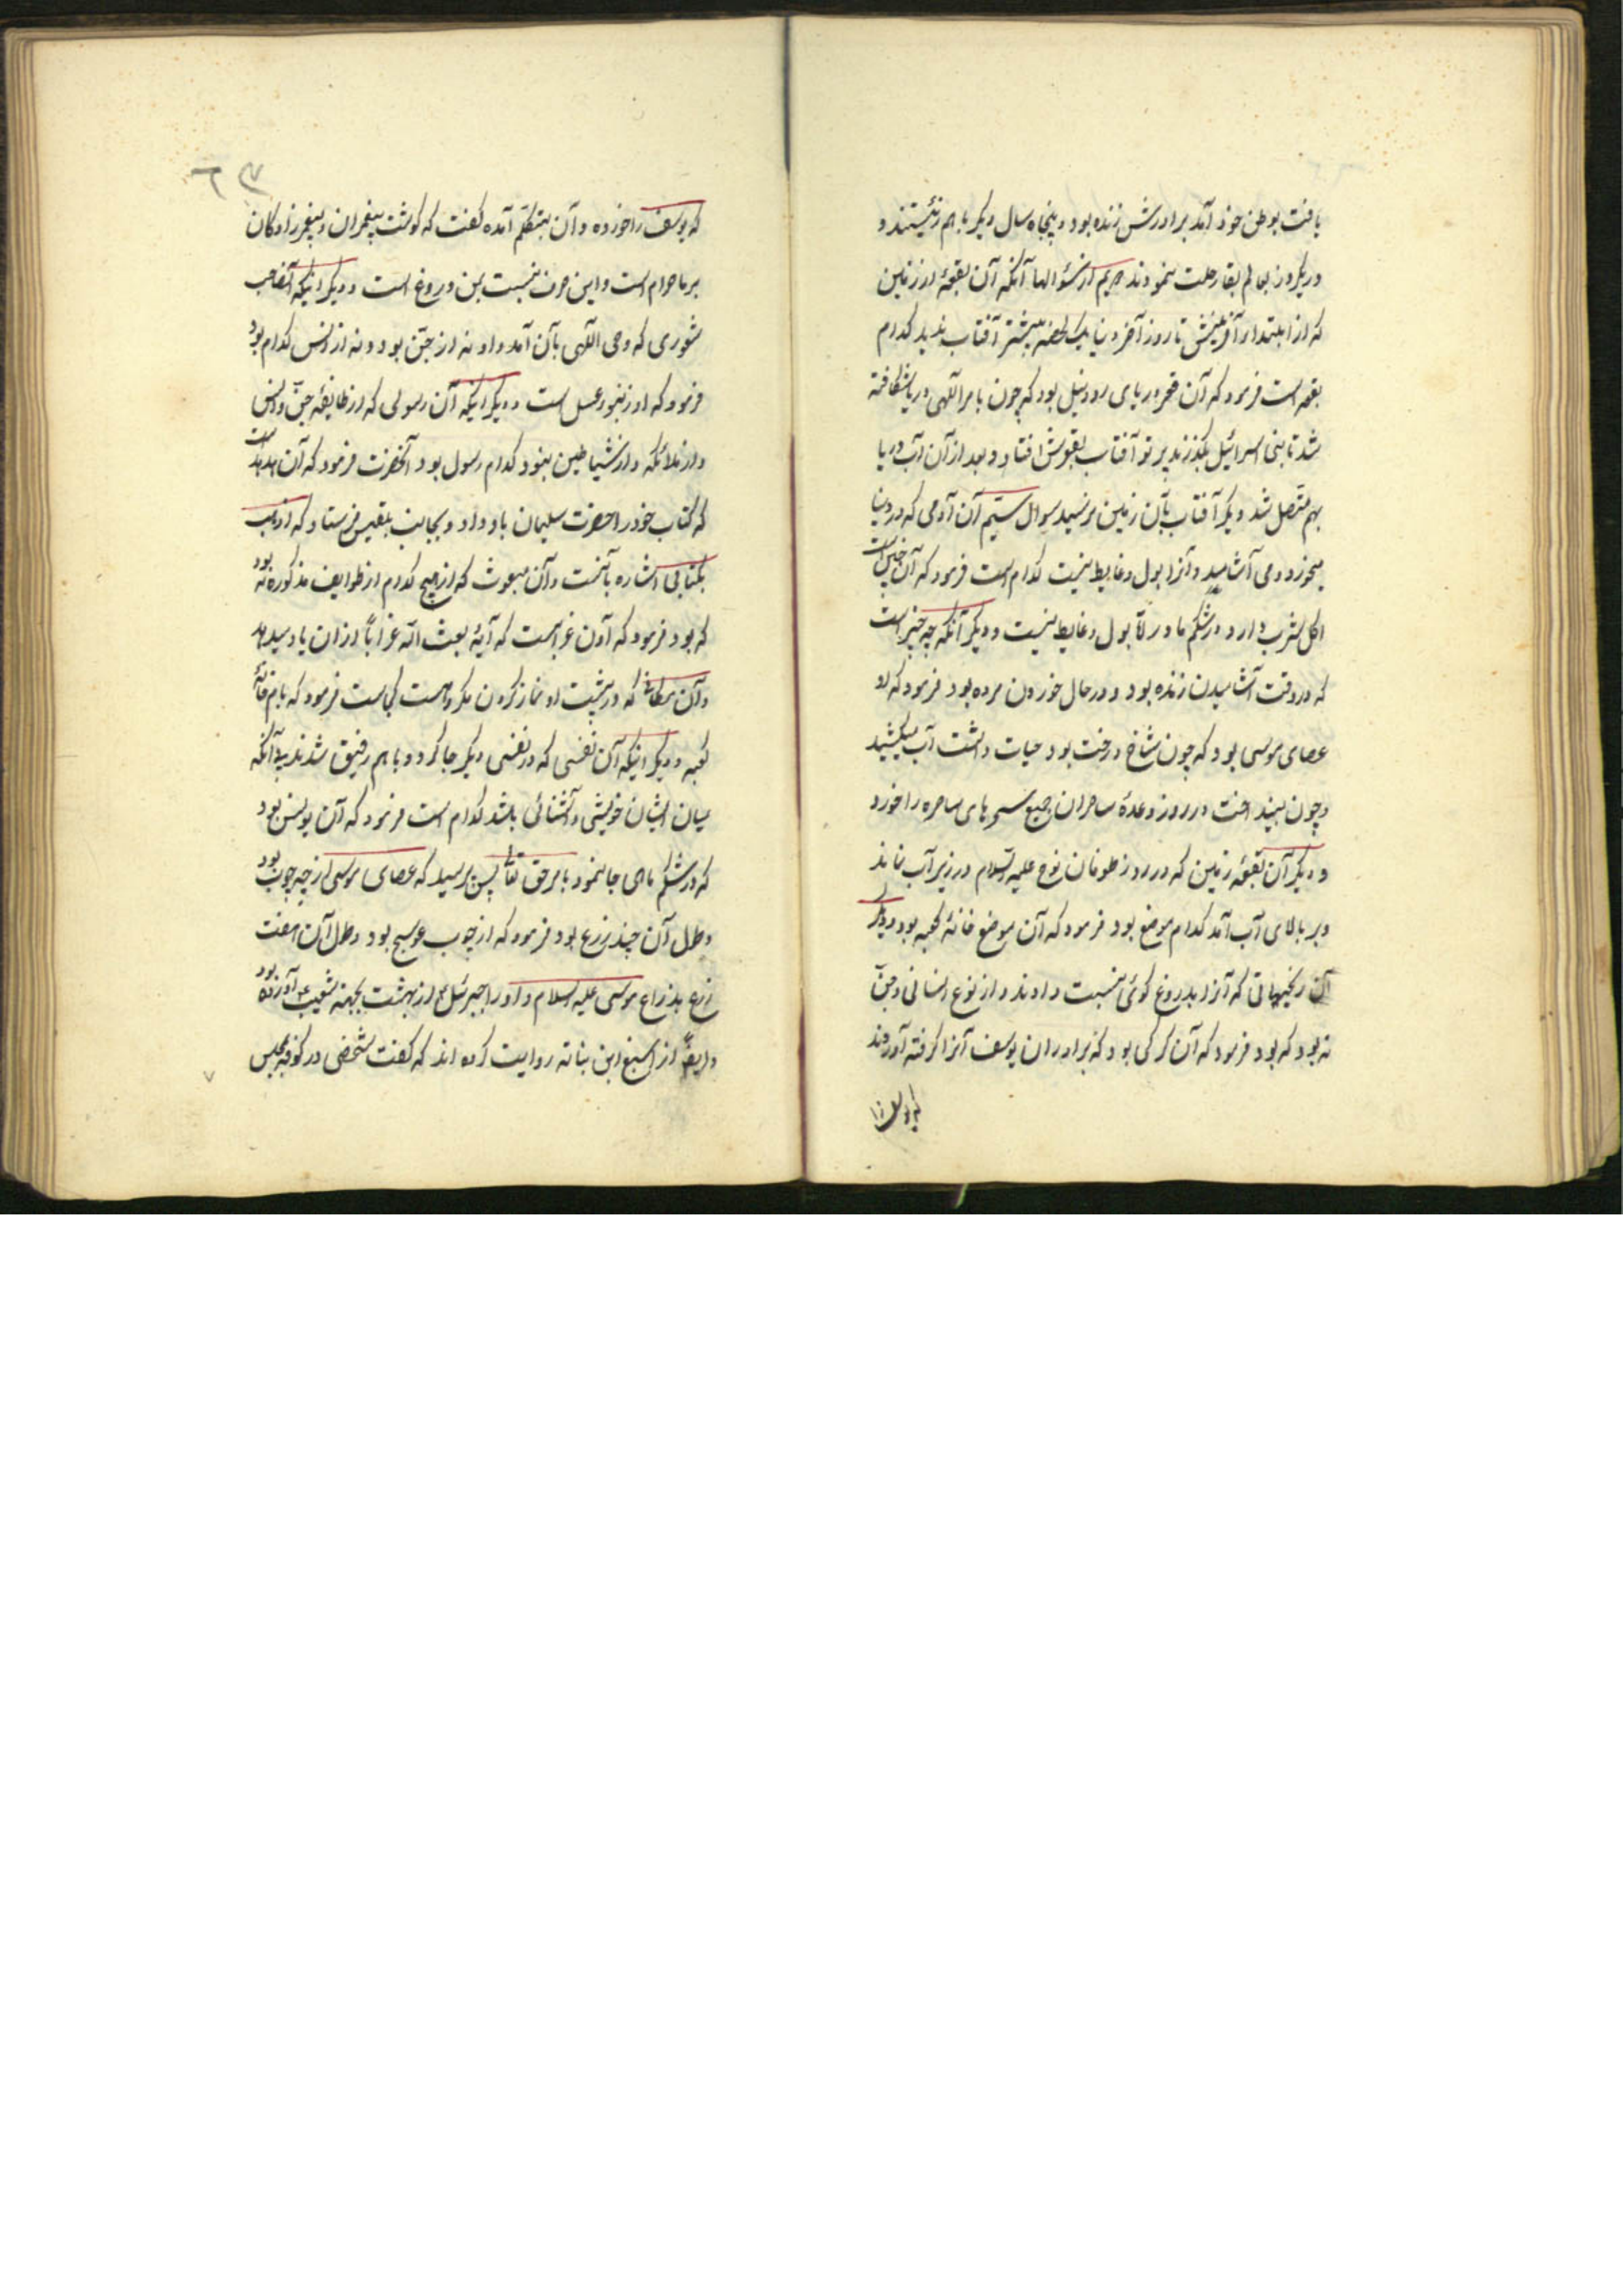 یافت بوطن خود آمد برادرش زنده بود و پنجاه سال دیگر باهم زیستند و
در یکروز بعالم بقا رحلت نمودند از سؤالها آنکه آن بقعهٔ از زمین
که از ابتداء آفرینش تا روز آخر دنیا یک لحظه بیشتر آفتاب ندید کدام
بقعه است فرمود که آن قعر دریای رود نیل بود که چون بامر آلهی دریا شکافته
شد تا بنی اسرائیل بگذرند پرتو آفتاب بقعرش افتاد و بعد از آن آب دریا
بهم متصل شد دیگر آفتاب بآن زمین نرسید سوال ستیم آن آدمی که در دنیا
میخورد و می آشامد و آنرا بول و غایط نیست کدام است فرمود که آن جنین است
اکل شرب دارد در شکم مادر امّا بول و غایط نیست و دیگر آنکه چه چیز است
که در وقت آشامیدن زنده بود و در حال خوردن مرده بود فرمود که او
عصای موسی بود که چون شاخ درخت بود حیات داشت آب میکشید
و چون بینداخت در روز وعدهٔ ساحران جمیع سحرهای ساحره را خورد
و دیگر آن بقعهٔ زمین که در روز طوفان نوح علیه السلام در زیر آب نماند
و بر بالای آب آمد کدام موضع بود فرمود که آن موضع خانهٔ کعبه بود و دیگر
آن که آنرا بدروغ گوئی نسبت دادند و از نوع انسانی و جنّ
نه بود که بود فرمود که آن گرگی بود که برادران یوسف آنرا گرفته آوردند
که یوسف را
که یوسف را خورده و آن بتکلم آمده گفت که گوشت پیغمران و پیغمرزادگان
بر ما حرام است و این حرف نسبت بمن دروغ است و دیگر اینکه آنصاحب
شعوری که وحی آلهی بآن آمد و او نه از جن بود و نه از انس کدام بود
فرمود که او زنبور عسل است و دیگر اینکه آن رسولی که از طایفهٔ جن و انس
و از ملائکه و از شیاطین نبود کدام رسول بود آنحضرت فرمود که آن هدهد است
که کتاب خود را حضرت سلیمان باو داد و بجانب بلقیس فرستاد که اذهب
بکتابی اشاره بآنست و آن مبعوث که از هیچ کدام از طوایف مذکوره نه بود
که بود فرمود که آن غرابست که آیهٔ بعث الله غراباً از آن یاد میدهد
و آن مکانی که در پشت او نماز کردن مکروهست کجاست فرمود که بام خانهٔ
کعبه و دیگر اینکه آن نفسی که در نفسی دیگر جا کرد و باهم رفیق شدند بی آنکه
میان ایشان خویشی و آشنائی باشد کدام است فرمود که آن یونس بود
که در شکم ماهی جا نمود بامر حق تعالی پس پرسید که عصای موسی از چه چوب بود
و طول آن چند زرع بود فرمود که از چوب عوسج بود و طول آن هفت
زرع بذراع موسی علیه السلام و او را جبرئیل از بهشت بجهة شعیب ع آورده بود
و ایضاً از اصبغ ابن بناته روایت کرده اند که گفت شخصی در کوفه بمجلس